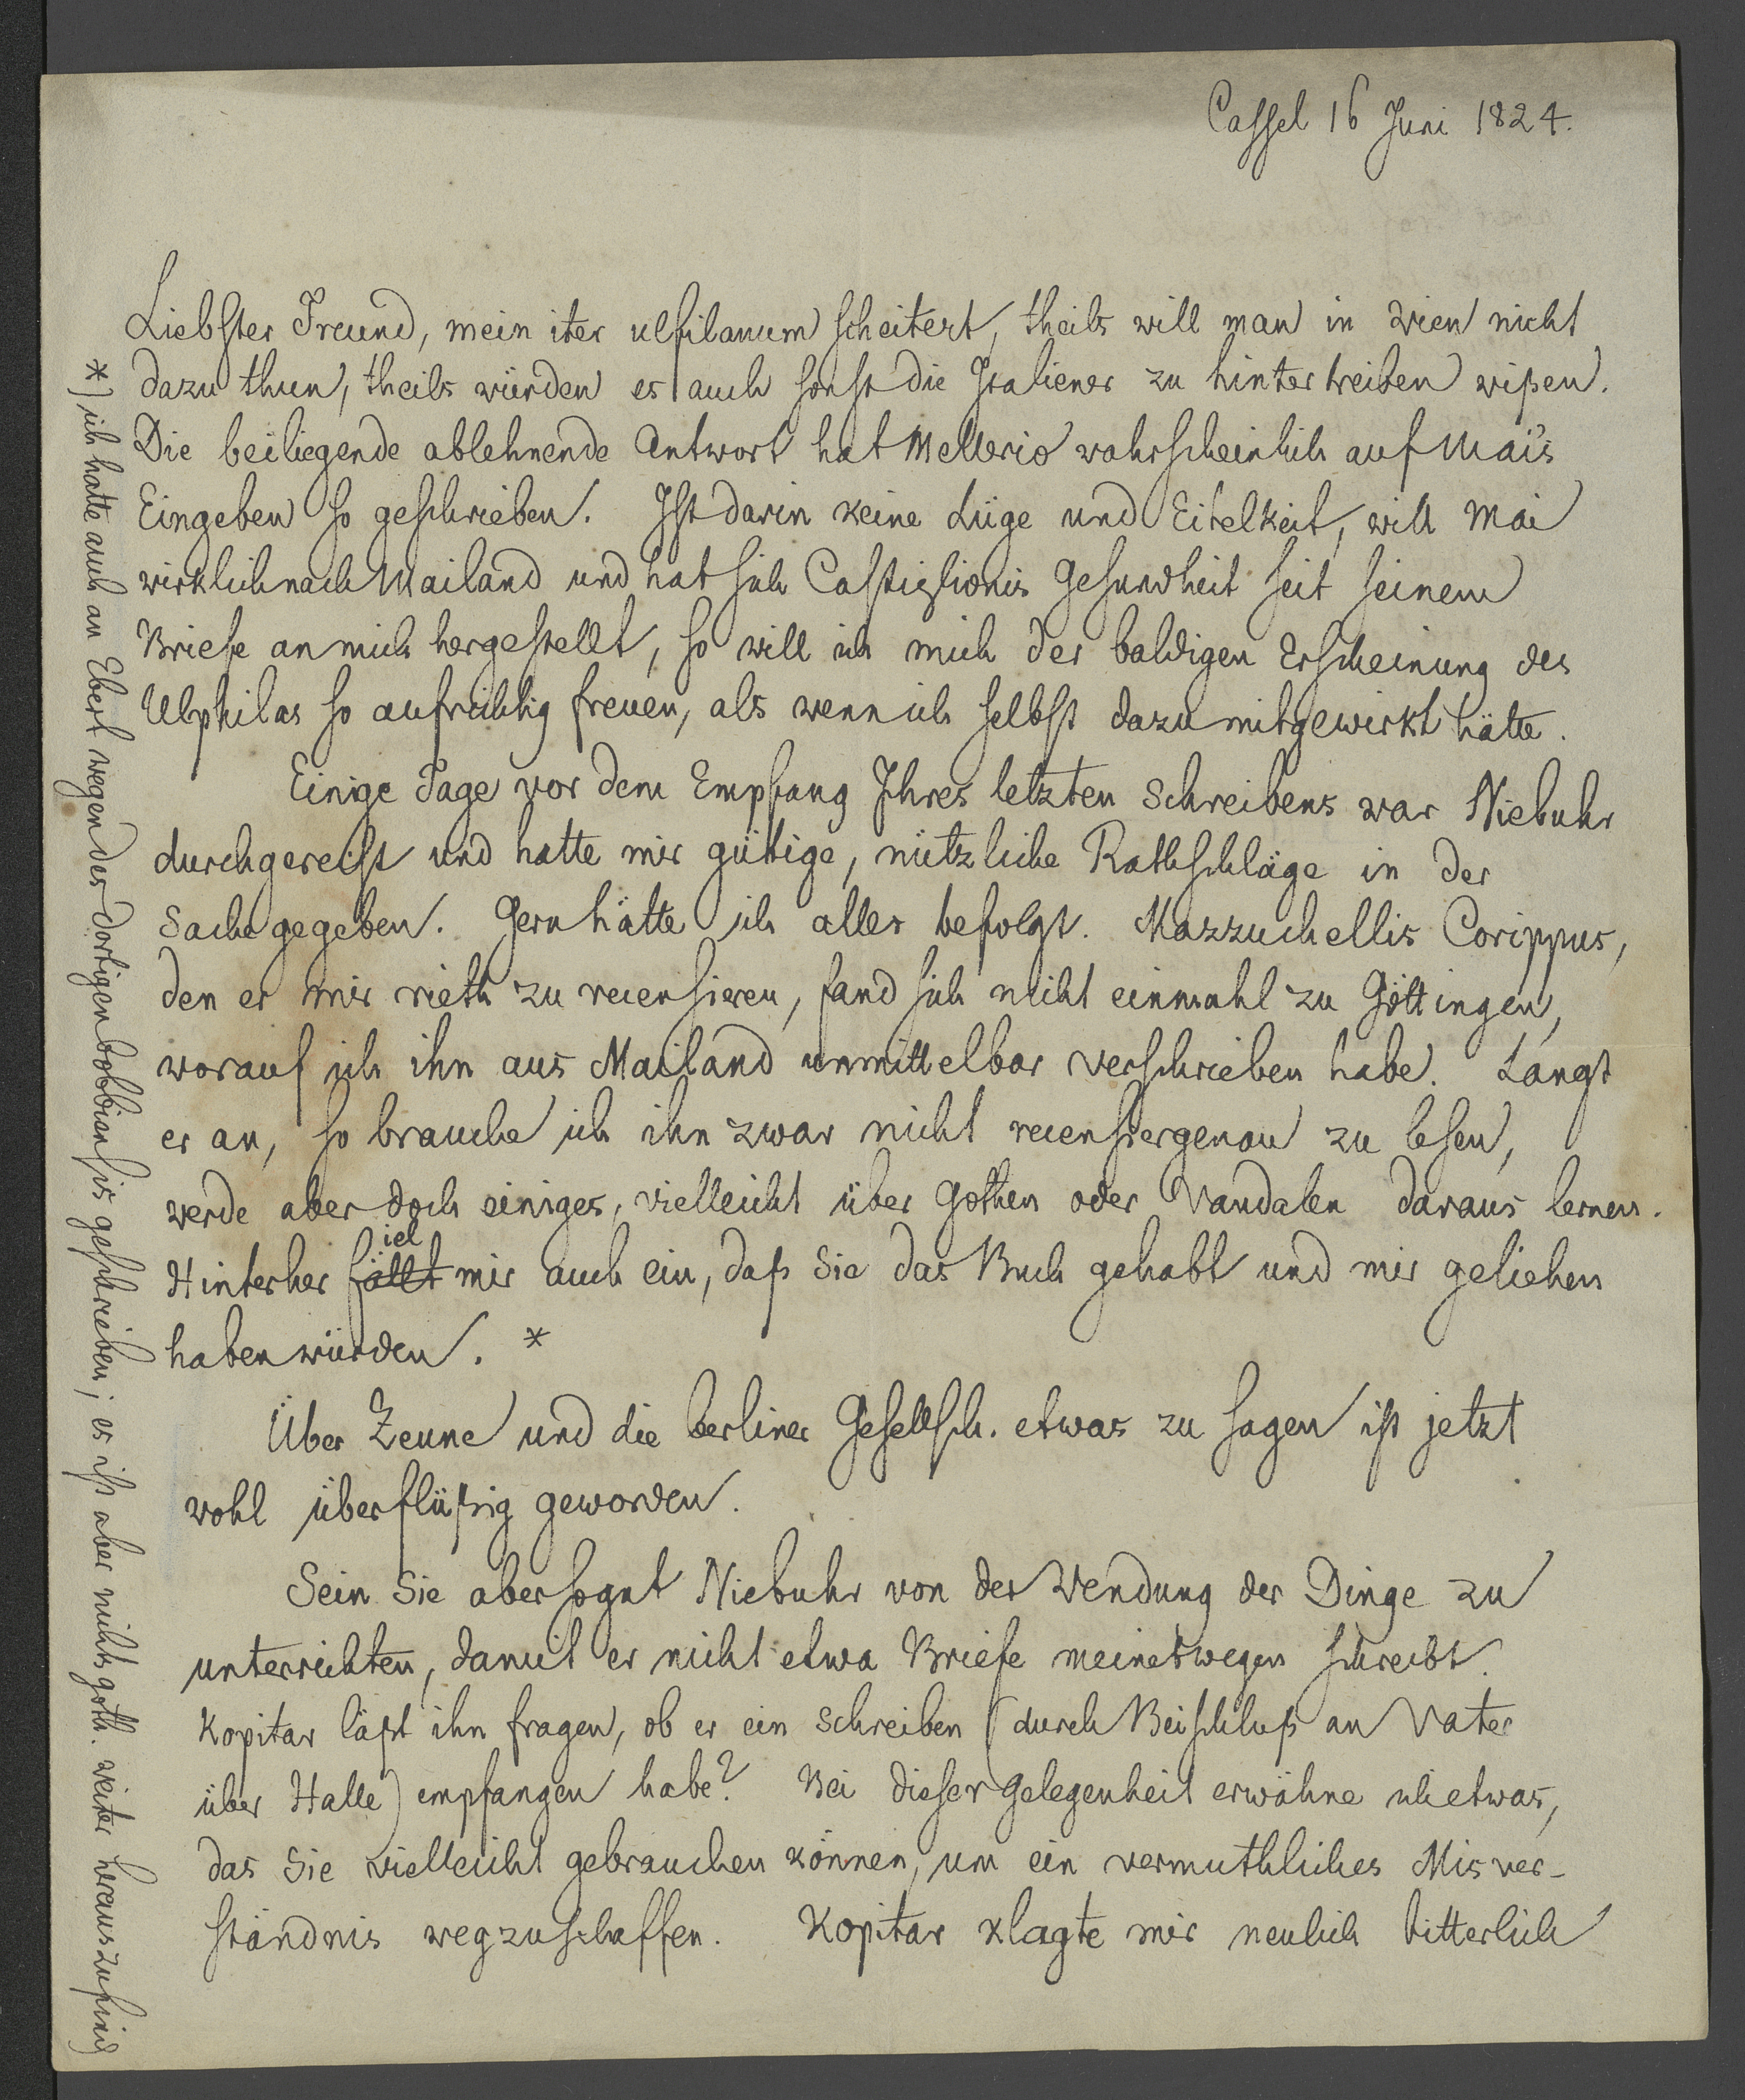 Cassel 16 Juni 1824.
Liebster Freund, mein iter ulfilanum scheitert, theils will man in Wien nicht
dazu thun, theils würden es auch sonst die Italiener zu hintertreiben wißen.
Die beiliegende ablehnende Antwort hat Mellerio wahrscheinlich auf Mai's
Eingeben so geschrieben. Ist darin keine Lüge und Eitelkeit, will Mai
wirklich nach Mailand und hat sich Castiglionis Gesundheit seit seinem
Briefe an mich hergestellt, so will ich mich der baldigen Erscheinung des
Ulphilas so aufrichtig freuen, als wenn ich selbst dazu mitgewirkt hätte.
Einige Tage vor dem Empfang Ihres letzten Schreibens war Niebuhr
durchgereist und hatte mir gütige, nützliche Rathschläge in der
Sache gegeben. Gern hätte ich alles befolgt. Mazzuchellis Corippus,
den er mir rieth zu recensieren, fand sich nicht einmahl zu Göttingen,
worauf ich ihn aus Mailand unmittelbar verschrieben habe. Langt
er an, so brauche ich ihn zwar nicht recensiergenau zu lesen,
werde aber doch einiges, vielleicht über Gothen oder Vandalen daraus lernen.
Hinterher fällt iel mir auch ein, daß Sie das Buch gehabt und mir geliehen
haben würden. *
Über Zeune und die berliner Gesellsch. etwas zu sagen ist jetzt
wohl überflüßig geworden.
Sein Sie aber so gut Niebuhr von der Wendung der Dinge zu
unterrichten, damit er nicht etwa Briefe meinetwegen schreibt.
Kopitar läßt ihn fragen, ob er ein Schreiben (durch Beischluß an Vater
über Halle) empfangen habe? Bei dieser Gelegenheit erwähne ich etwas,
das Sie vielleicht gebrauchen können, um ein vermuthliches Misver-
ständnis wegzuschaffen. Kopitar klagte mir neulich bitterlich
*) ich hatte auch an Ebert wegen der dortigen bobbiensis geschrieben; es ist aber nichts goth. weiter heraus zu find